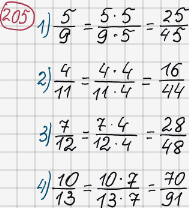 205
1) 5/9 = 5·5/9·5 = 25/45
2) 4/11 = 4·4/11·4 = 16/44
3) 7/12 = 7·4/12·4 = 28/48
4) 10/13 = 10·7/13·7 = 70/91